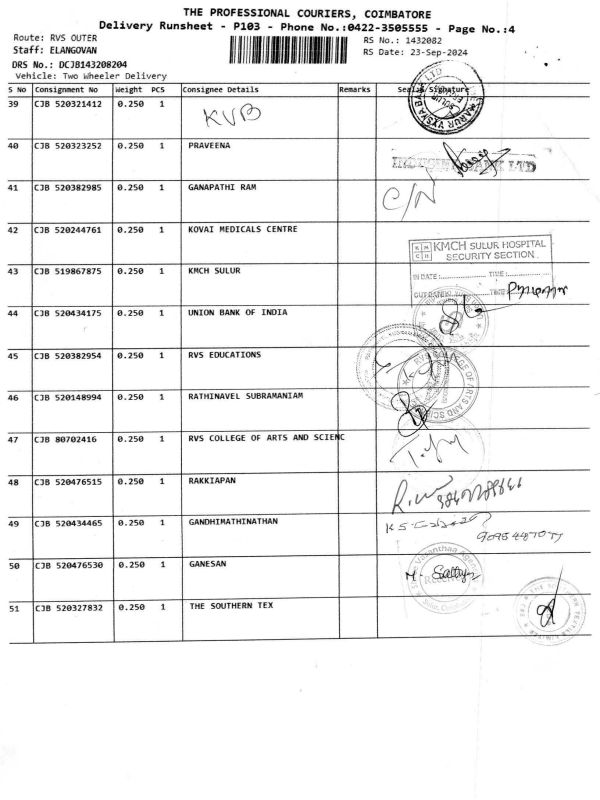 THE PROFESSIONAL COURIERS, COIMBATORE
Delivery Runsheet - P103 - Phone No.:0422-3505555 - Page No.:4
Route: RVS OUTER
RS No.: 1432082
Staff: ELANGOVAN
RS Date: 23-Sep-2024
DRS No.: DCJB143208204
Vehicle: Two Wheeler Delivery
S No Consignment No Weight PCS Consignee Details Remarks Seal & Signature
39 CJB 520321412 0.250 1 KVB
SULUR
40 CJB 520323252 0.250 1 PRAVEENA
BANK LTD
41 CJB 520382985 0.250 1 GANAPATHI RAM
C/N
42 CJB 520244761 0.250 1 KOVAI MEDICALS CENTRE
KMCH SULUR HOSPITAL
SECURITY SECTION
43 CJB 519867875 0.250 1 KMCH SULUR
IN DATE: TIME:
OUT DATE: TIME
44 CJB 520434175 0.250 1 UNION BANK OF INDIA
45 CJB 520382954 0.250 1 RVS EDUCATIONS
RVS COLLEGE OF ARTS AND SCIENCE
46 CJB 520148994 0.250 1 RATHINAVEL SUBRAMANIAM
47 CJB 80702416 0.250 1 RVS COLLEGE OF ARTS AND SCIENC
48 CJB 520476515 0.250 1 RAKKIAPAN
49 CJB 520434465 0.250 1 GANDHIMATHINATHAN
50 CJB 520476530 0.250 1 GANESAN
M. Sathya
51 CJB 520327832 0.250 1 THE SOUTHERN TEX